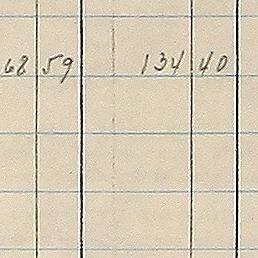 68 59 134 40